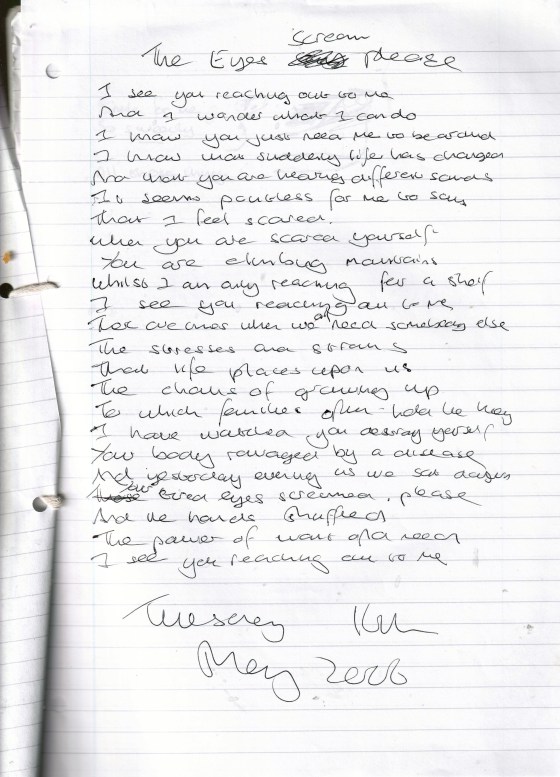 scream
The Eyes please
I see you reaching out to me
And I wonder what I can do
I know you just need me to be around
I know that suddenly life has changed
And that you are hearing different sounds
It seems pointless for me to say
That I feel scared.
When you are scared yourself
You are climbing mountains
Whilst I am only reaching for a shelf
I see you reaching out to me
There are times when we all need somebody else
The stresses and strains
That life places upon us
The chains of growing up
To which families often hold the key
I have watched you destroy yourself
Your body ravaged by a disease
And yesterday evening as we sat
Your tired eyes screamed, please
And the hands
The power of want and need
I see you reaching out to me
Tuesday
May 2006